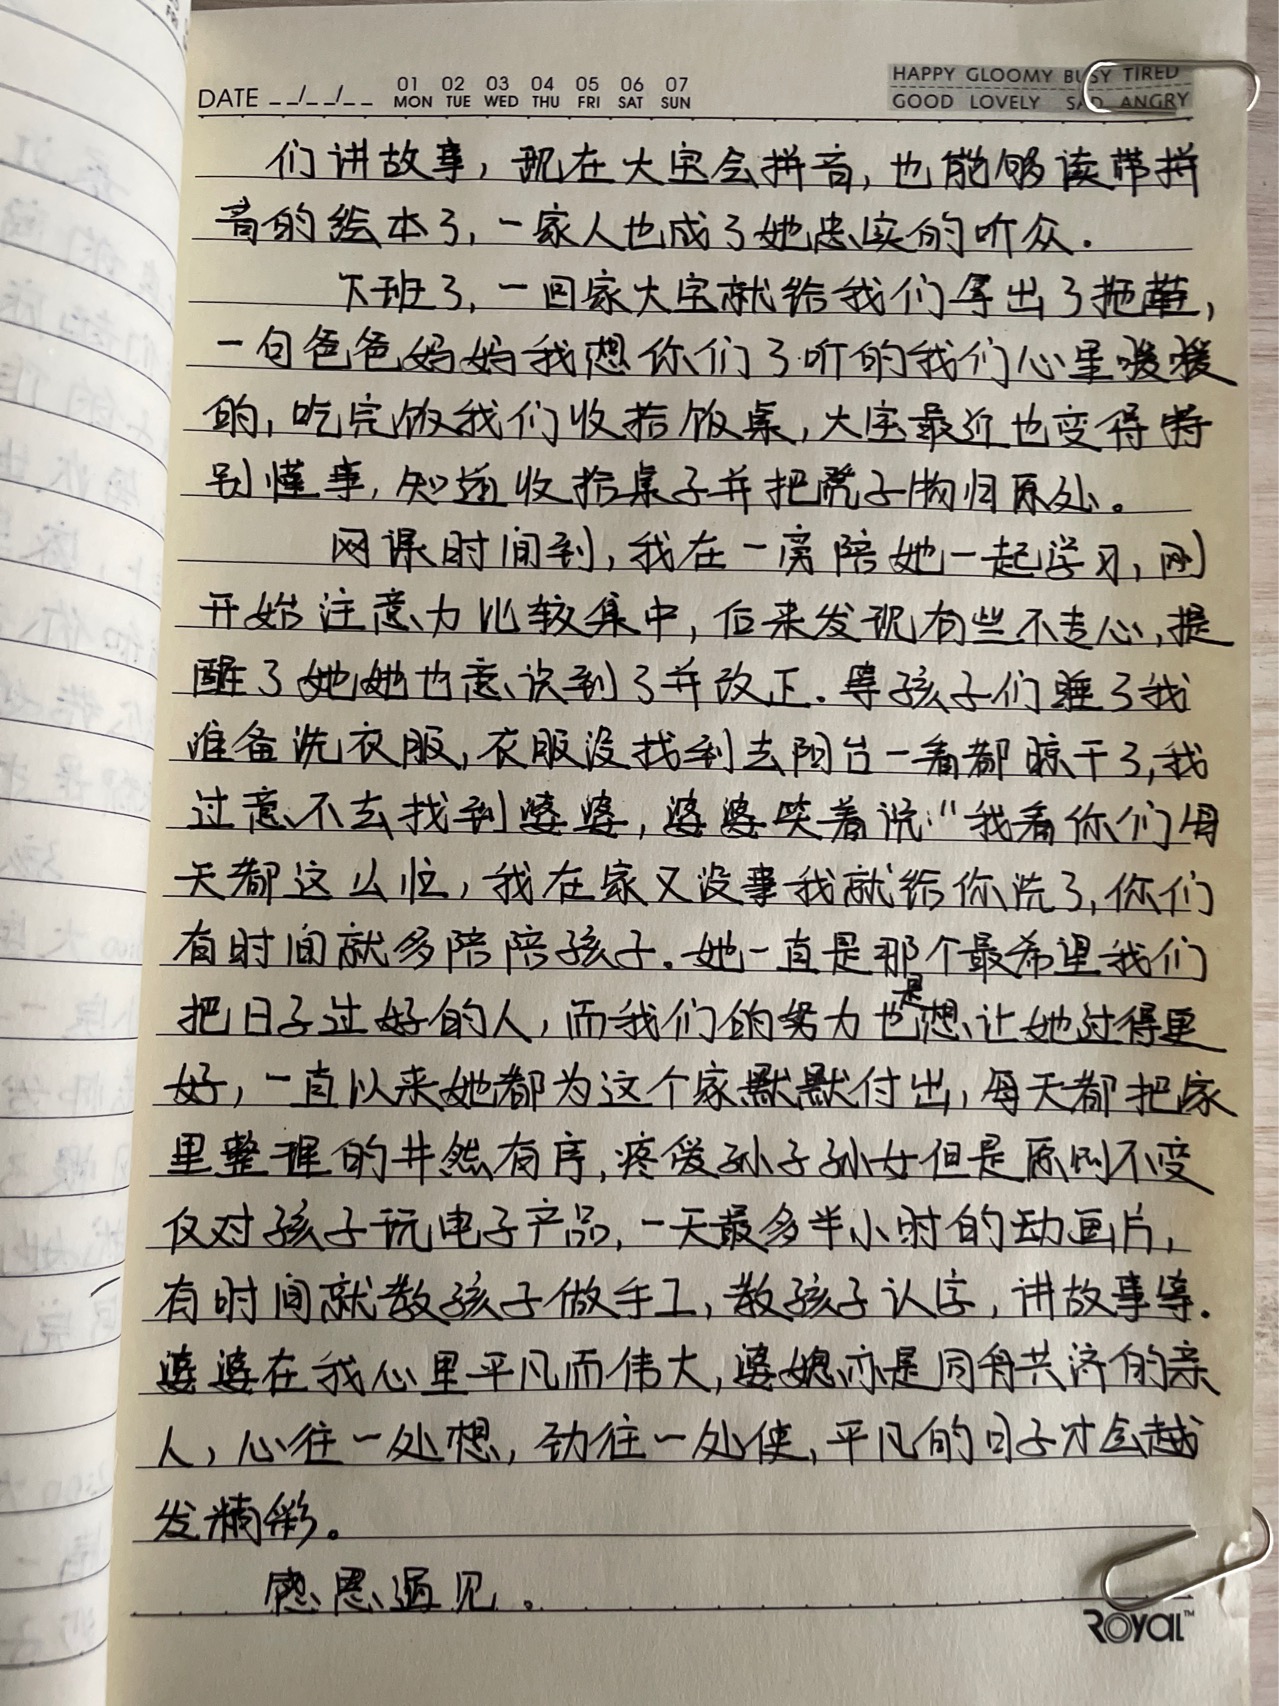 DATE __/__/__ 01 MON 02 TUE 03 WED 04 THU 05 FRI 06 SAT 07 SUN
HAPPY GLOOMY BUSY TIRED
GOOD LOVELY SAD ANGRY
们讲故事，现在大宝会拼音，也能够读带拼
音的绘本了，一家人也成了她忠实的听众.
下班了，一回家大宝就给我们拿出了拖鞋，
一句爸爸妈妈我想你们了听的我们心里暖暖
的，吃完饭我们收拾饭桌，大宝最近也变得特
别懂事，知道收拾桌子并把凳子物归原处。
网课时间到，我在一旁陪她一起学习，刚
开始注意力比较集中，后来发现有些不专心，提
醒了她她也意识到了并改正.等孩子们睡了我
准备洗衣服，衣服没找到去阳台一看都晾干了，我
过意不去找到婆婆，婆婆笑着说："我看你们每
天都这么忙，我在家又没事我就给你洗了，你们
有时间就多陪陪孩子.她一直是那个最希望我们
把日子过好的人，而我们的努力也是想让她过得更
好，一直以来她都为这个家默默付出，每天都把家
里整理的井然有序，疼爱孙子孙女但是原则不变
仅对孩子玩电子产品，一天最多半小时的动画片，
有时间就教孩子做手工，教孩子认字，讲故事等.
婆婆在我心里平凡而伟大，婆媳亦是同舟共济的亲
人，心往一处想，劲往一处使，平凡的日子才会越
发精彩。
感恩遇见。
ROYAL™